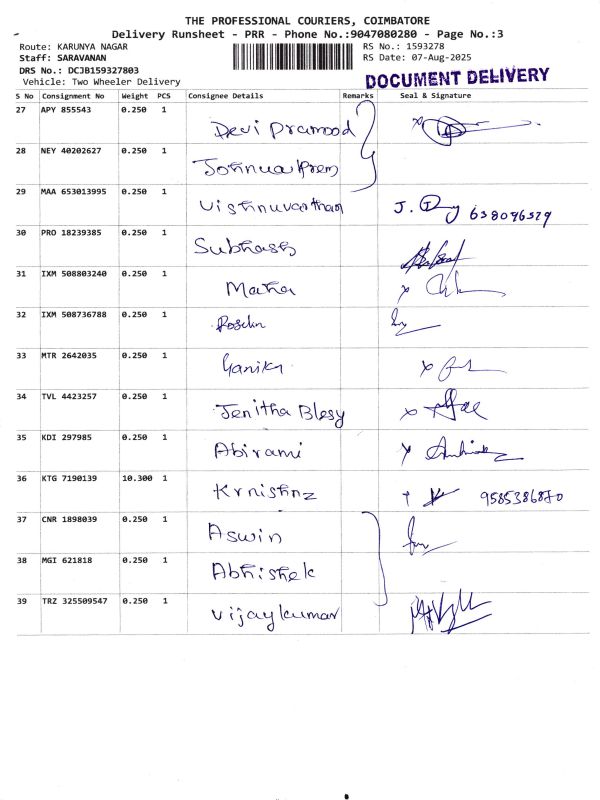 THE PROFESSIONAL COURIERS, COIMBATORE
Delivery Runsheet - PRR - Phone No.:9047080280 - Page No.:3
Route: KARUNYA NAGAR RS No.: 1593278
Staff: SARAVANAN RS Date: 07-Aug-2025
DRS No.: DCJB159327803
Vehicle: Two Wheeler Delivery DOCUMENT DELIVERY
S No Consignment No Weight PCS Consignee Details Remarks Seal & Signature
27 APY 855543 0.250 1 Devi Pramood
28 NEY 40202627 0.250 1
29 MAA 653013995 0.250 1 Vishnuvarthan 6380965J9
30 PRO 18239385 0.250 1 Subhash
31 IXM 508803240 0.250 1 Maha
32 IXM 508736788 0.250 1 Roselin
33 MTR 2642035 0.250 1
34 TVL 4423257 0.250 1 Jenitha Blesy
35 KDI 297985 0.250 1 Abirami
36 KTG 7190139 10.300 1 9585386870
37 CNR 1898039 0.250 1 Aswin
38 MGI 621818 0.250 1 Abhishek
39 TRZ 325509547 0.250 1 Vijaykumar